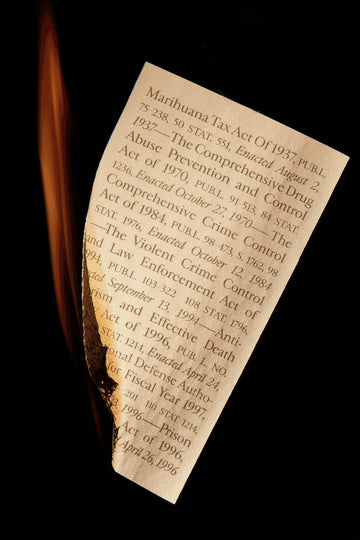 Marihuana Tax Act Of 1937, PUB.L.
75-238, 50 STAT. 551, Enacted August 2,
1937—The Comprehensive Drug
Abuse Prevention and Control
Act of 1970, PUB.L. 91-513, 84 STAT
1236, Enacted October 27, 1970—The
Comprehensive Crime Control
Act of 1984, PUB.L. 98-473, S. 1762, 98
STAT. 1976, Enacted October 12, 1984
—The Violent Crime Control
and Law Enforcement Act of
1994, PUB.L. 103-322 108 STAT. 1796,
cted September 13, 1994—Anti-
rism and Effective Death
Act of 1996, PUB. L. NO.
STAT. 1214, Enacted April 24,
onal Defense Autho-
for Fiscal Year 1997,
201 110 STAT 1214,
1996—Prison
Act of 1996,
April 26, 1996